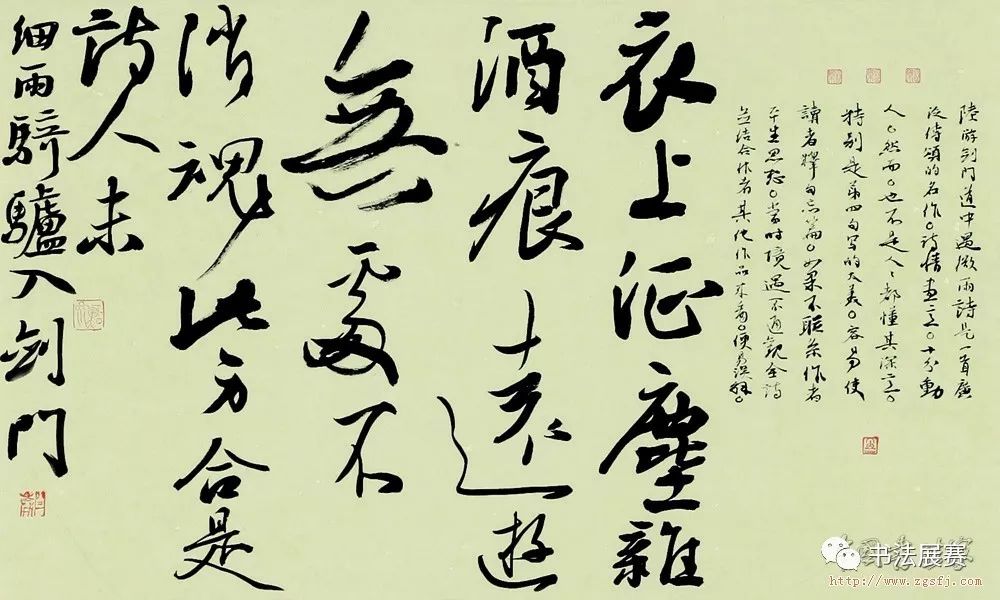 陸游剑門道中遇微雨詩是一首廣
泛传頌的名作。詩情畫意。十分動
人。然而。也不是人々都懂其深意。
特别是第四句写的太美。容易使
讀者释句忘篇。如果不联系作者
平生思想。当时境遇。不通觀全詩
并结合作者其他作品来看。便易误解。
衣上征塵雜
酒痕遠遊
無處不
消魂此身合是
詩人未
細雨騎驢入劍門
书法展赛
http://www.zgsfj.com